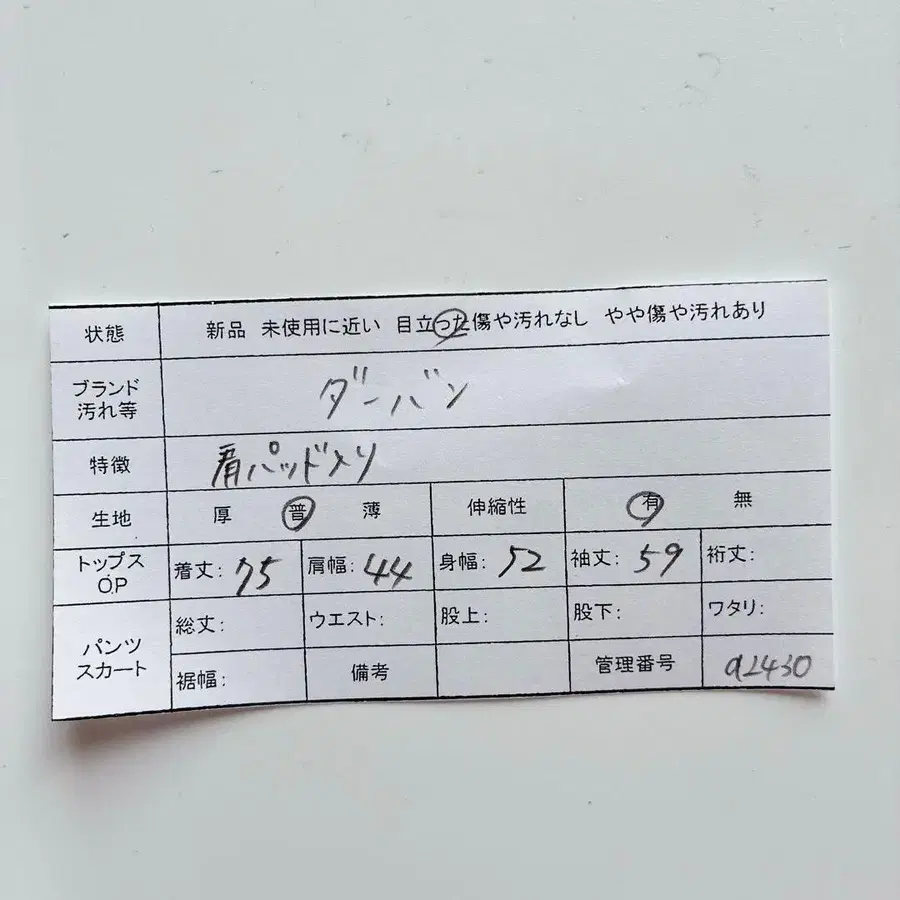 状態 新品 未使用に近い 目立った傷や汚れなし やや傷や汚れあり
ブランド
汚れ等 ダーバン
特徴 肩パッド入り
生地 厚 普 薄 伸縮性 有 無
トップス
O.P 着丈: 75 肩幅: 44 身幅: 52 袖丈: 59 裄丈:
パンツ
スカート 総丈: ウエスト: 股上: 股下: ワタリ:
裾幅: 備考 管理番号 a2430